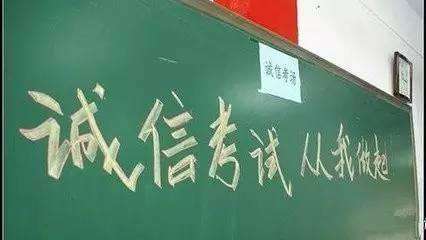 诚信考场
诚信考试 从我做起